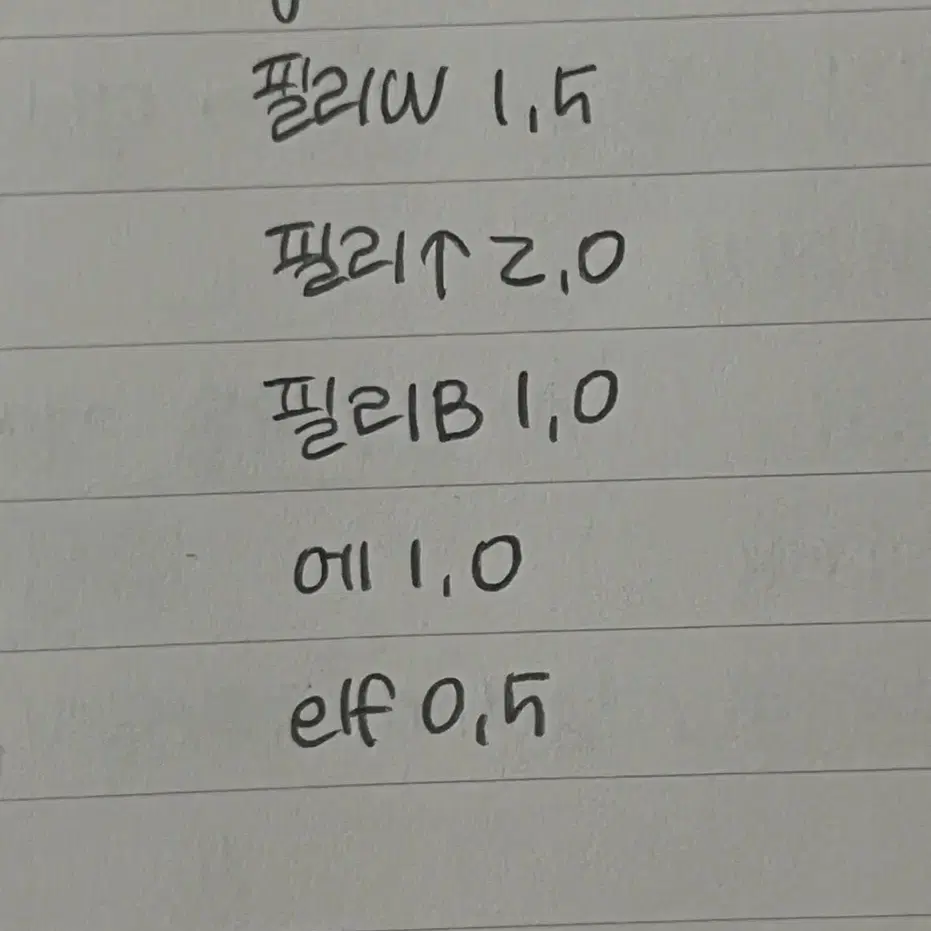 필리W 1,5
필리↑ 2,0
필리B 1,0
에 1,0
elf 0,5